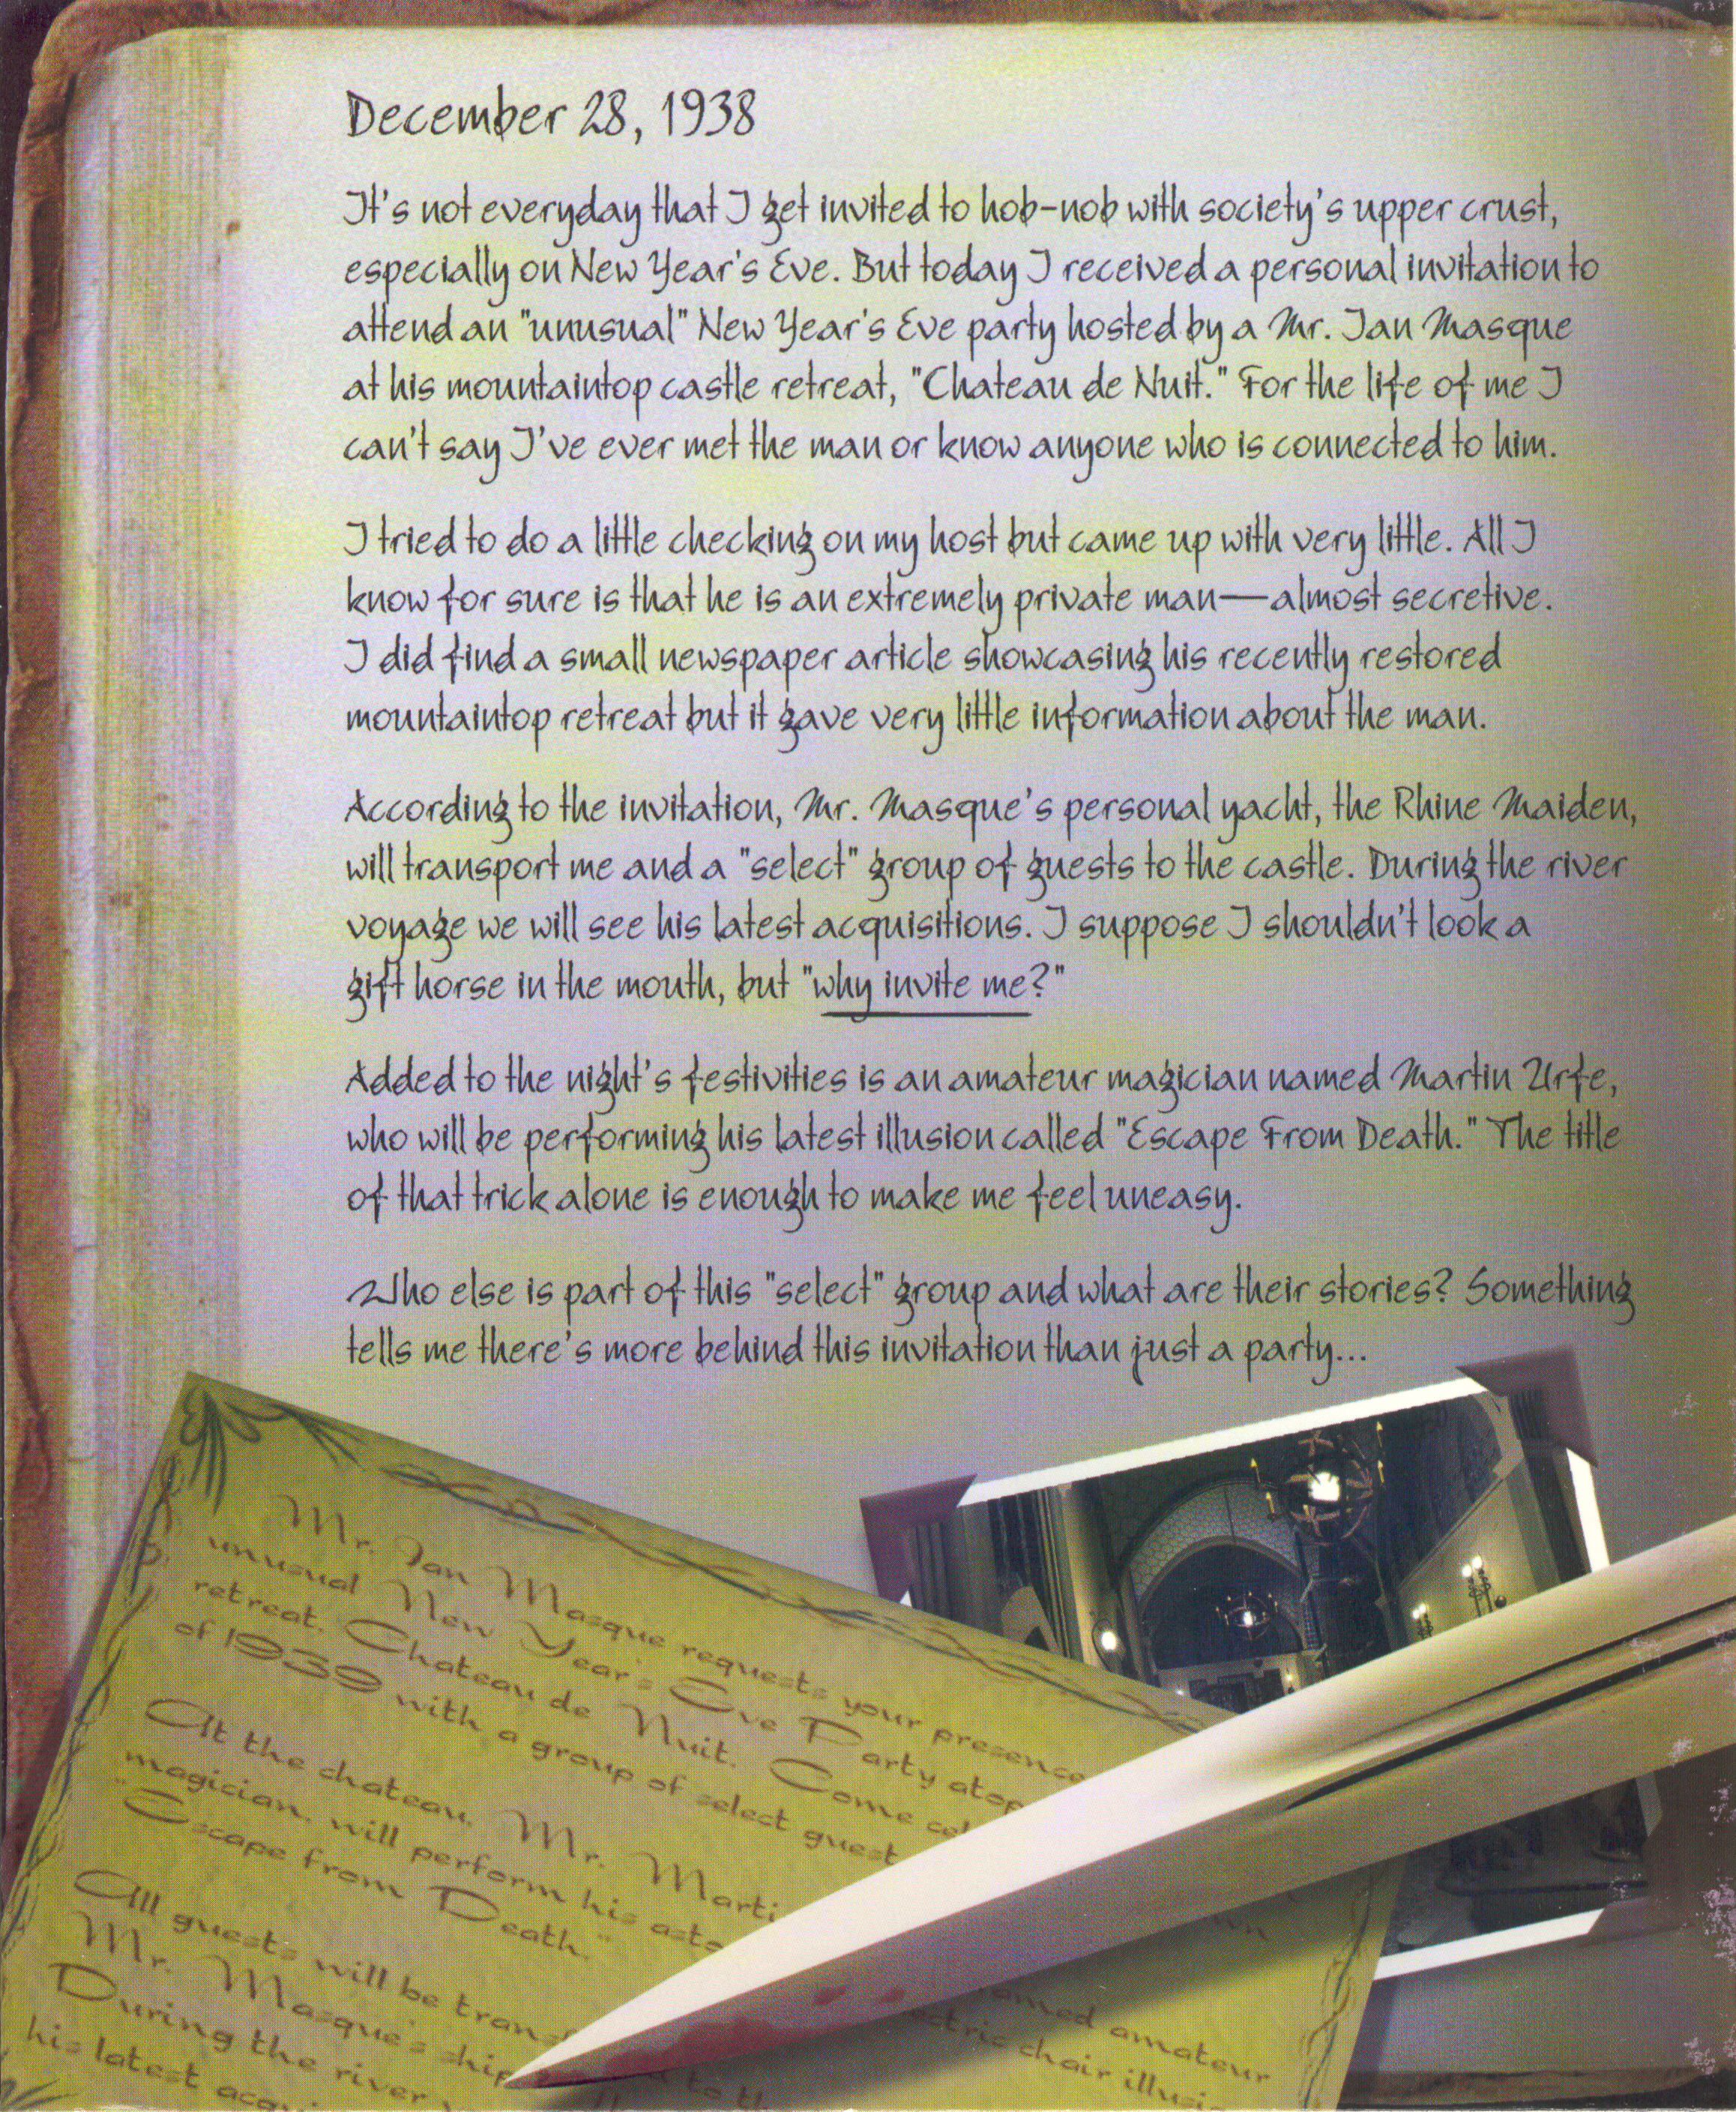 December 28, 1938
It's not everyday that I get invited to hob-nob with society's upper crust,
especially on New Year's Eve. But today I received a personal invitation to
attend an "unusual" New Year's Eve party hosted by a Mr. Ian Masque
at his mountaintop castle retreat, "Chateau de Nuit." For the life of me I
can't say I've ever met the man or know anyone who is connected to him.
I tried to do a little checking on my host but came up with very little. All I
know for sure is that he is an extremely private man—almost secretive.
I did find a small newspaper article showcasing his recently restored
mountaintop retreat but it gave very little information about the man.
According to the invitation, Mr. Masque's personal yacht, the Rhine Maiden,
will transport me and a "select" group of guests to the castle. During the river
voyage we will see his latest acquisitions. I suppose I shouldn't look a
gift horse in the mouth, but "why invite me?"
Added to the night's festivities is an amateur magician named Martin Urfe,
who will be performing his latest illusion called "Escape From Death." The title
of that trick alone is enough to make me feel uneasy.
Who else is part of this "select" group and what are their stories? Something
tells me there's more behind this invitation than just a party...
Mr. Ian Masque requests your presence
unusual New Year's Eve Party atop
retreat, Chateau de Nuit. Come cel
of 1939 with a group of select guest
At the chateau, Mr. Marti
magician, will perform his asto
"Escape from Death."
amed amateur
ectric chair illusi
All guests will be transf
to th
Mr. Masque's ship
During the river
his latest acqui